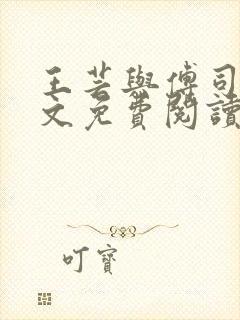 王芸與傅司
文免費閱讀
叮寶